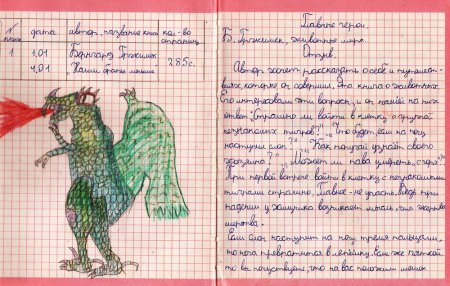 № книги дата автор, название книги кол-во страниц
1 1.01 Бернгард Гржимек 285с.
4.01 "Наши братья меньшие
Главные герои.
Б. Гржимек, животные мира.
Отзыв.
Автор хочет рассказать о себе и путешест-
виях, которые он совершил. Это книга о животных.
Его интересовали эти вопросы, и он нашёл на них
ответ. "Страшно ли войти в клетку с группой
незнакомых тигров?" "Что будет если на ногу
наступил слон?" "Как попугай узнаёт своего
хозяина?" "Может ли лава умереть с горя?"
При первой встрече войти в клетку с незнакомыми
тиграми страшно. Главное - не упасть. Ведь при
падении у хищника возникает мысль, что жертва
мертва.
Если слон наступит на ногу тремя пальцами,
то нога превратится в лепёшку, если же пяткой
то вы почувствуете, что на вас положили мешок